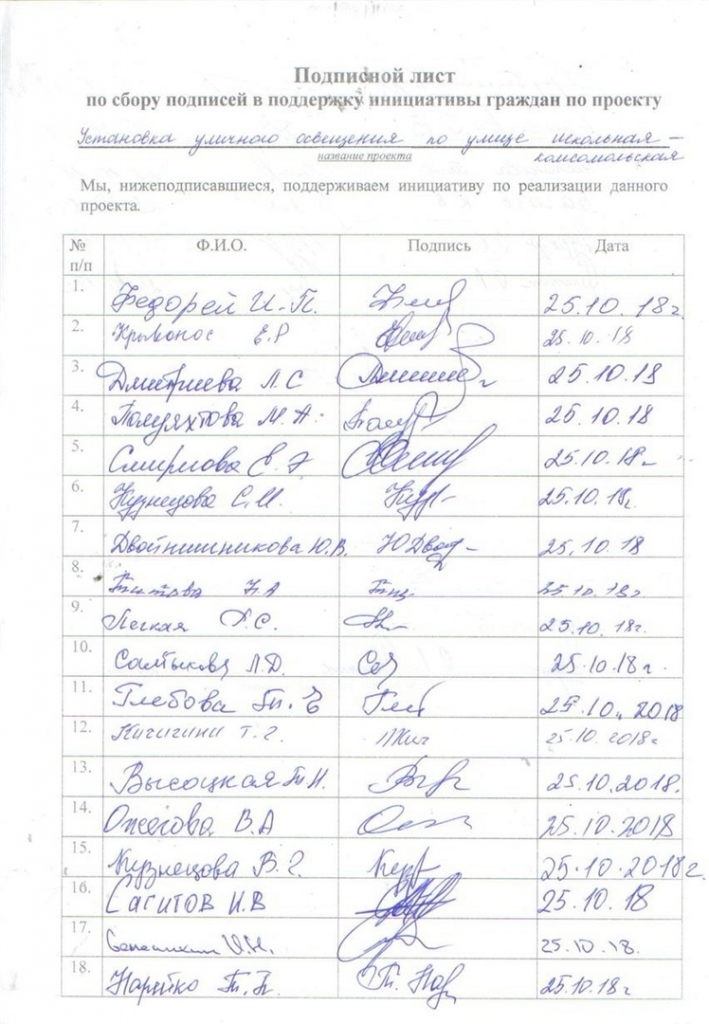 Подписной лист
по сбору подписей в поддержку инициативы граждан по проекту
Установка уличного освещения по улице школьная –
название проекта комсомольская
Мы, нижеподписавшиеся, поддерживаем инициативу по реализации данного
проекта.
№ п/п Ф.И.О. Подпись Дата
1. Федорей И.П. 25.10.18г.
2. Е.Р 25.10.18
3. Дмитриева Л.С 25.10.18
4. Полуяхтова М.А. 25.10.18
5. Смирнова 25.10.18г
6. Кузнецова С.И. 25.10.18г.
7. Ю.В. ЮДвой 25.10.18
8. Титова Н.А 25.10.18г
9. Легкая 25.10.18г.
10. Л.Д. Сал 25.10.18г.
11. Глебова Глеб 25.10.2018
12. Т.Г. 25.10.2018г
13. Высоцкая Т.Н. 25.10.2018.
14. Ожегова В.А 25.10.2018
15. Кузнецова В.Г. 25.10.2018г.
16. Сагитов И.В 25.10.18
17. И.Н. 25.10.18.
18. Нарейко Т.П. Т.Нар 25.10.18г